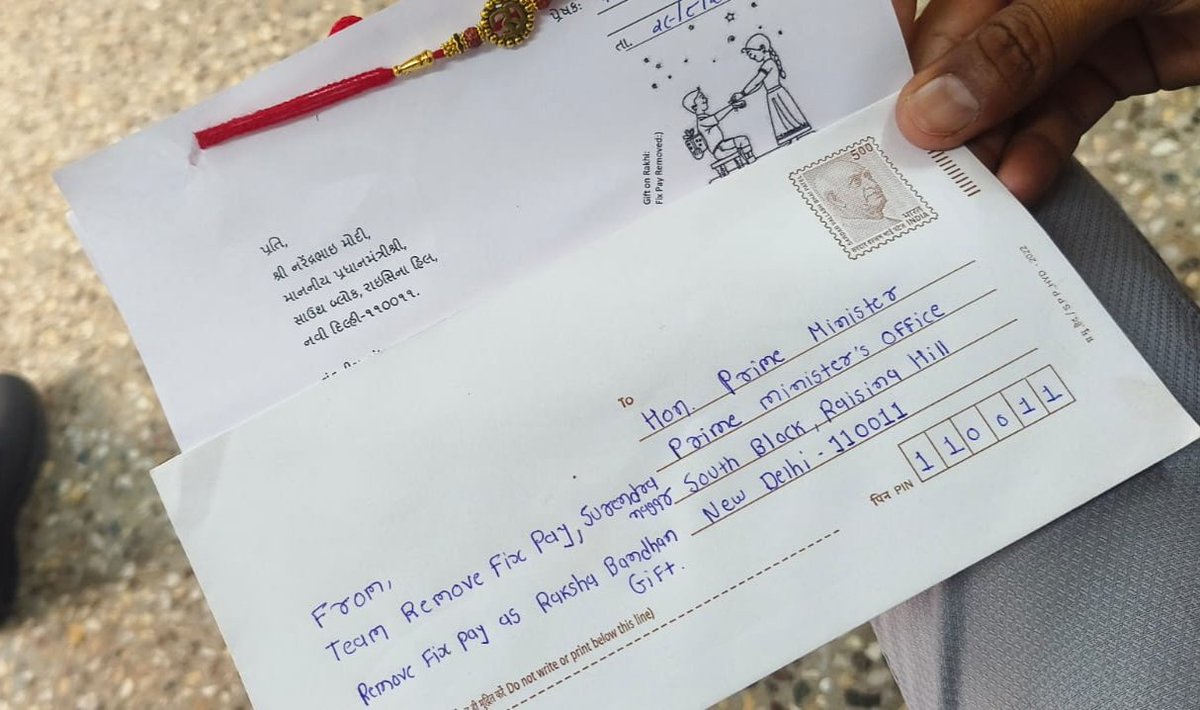 પ્રેષક:
તા.
Gift on Rakhi:
Fix Pay Removed:)
પ્રતિ,
શ્રી નરેન્દ્રભાઇ મોદી,
માનનીય પ્રધાનમંત્રીશ્રી,
સાઉથ બ્લોક, રાઇસિના હિલ,
નવી દિલ્હી-૧૧૦૦૧૧.
500
भारत
INDIA
To
Hon. Prime Minister
Prime Minister's Office
South Block, Raising Hill
New Delhi - 110011
पिन PIN 110011
From,
Team Remove Fix Pay, Surendra
nagar
Remove Fix pay as Raksha Bandhan
Gift.
Do not write or print below this line)
S P P ,HYD - 2022